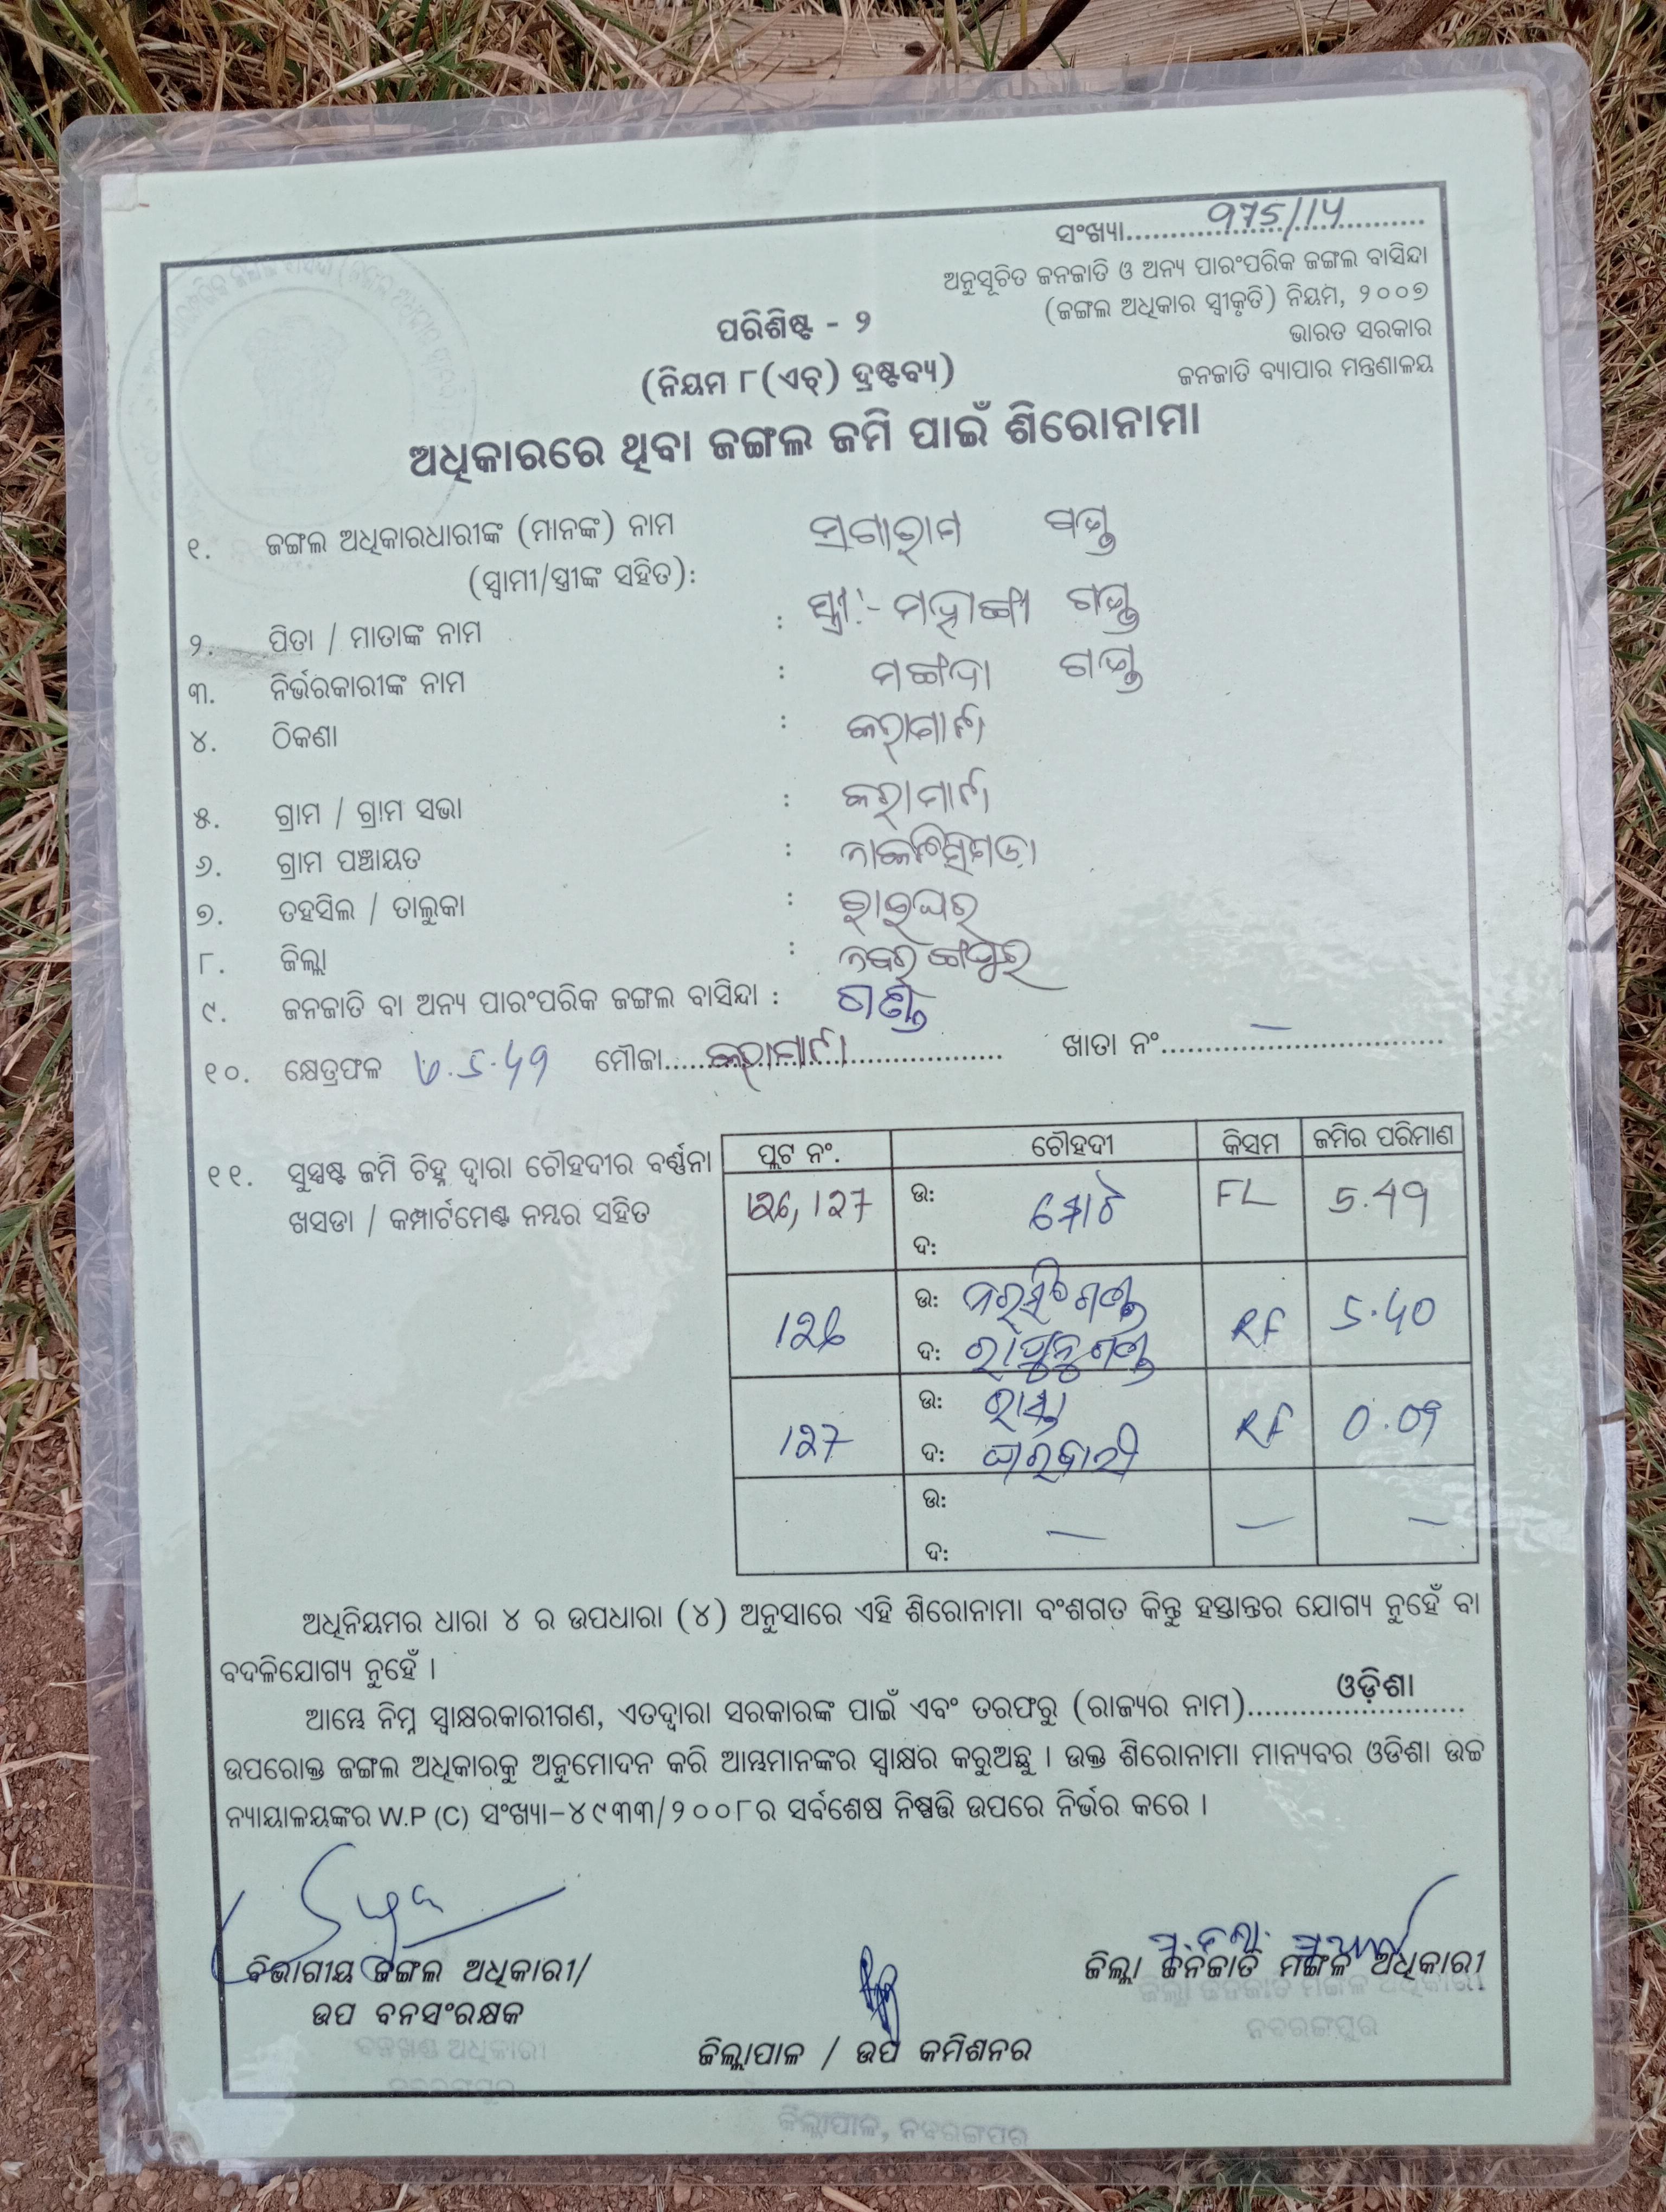 ସଂଖ୍ୟା 975/14
ଅନୁସୂଚିତ ଜନଜାତି ଓ ଅନ୍ୟ ପାରଂପରିକ ଜଙ୍ଗଲ ବାସିନ୍ଦା
(ଜଙ୍ଗଲ ଅଧିକାର ସ୍ୱୀକୃତି) ନିୟମ, ୨୦୦୭
ଭାରତ ସରକାର
ଜନଜାତି ବ୍ୟାପାର ମନ୍ତ୍ରଣାଳୟ
ପରିଶିଷ୍ଟ - ୨
(ନିୟମ ୮(ଏଚ୍) ଦ୍ରଷ୍ଟବ୍ୟ)
ଅଧିକାରରେ ଥିବା ଜଙ୍ଗଲ ଜମି ପାଇଁ ଶିରୋନାମା
୧. ଜଙ୍ଗଲ ଅଧିକାରଧାରୀଙ୍କ (ମାନଙ୍କ) ନାମ
(ସ୍ୱାମୀ/ସ୍ତ୍ରୀଙ୍କ ସହିତ):
୨. ପିତା / ମାତାଙ୍କ ନାମ :
୩. ନିର୍ଭରକାରୀଙ୍କ ନାମ :
୪. ଠିକଣା :
୫. ଗ୍ରାମ / ଗ୍ରାମ ସଭା :
୬. ଗ୍ରାମ ପଞ୍ଚାୟତ :
୭. ତହସିଲ / ତାଲୁକା : ରାଇଘର
୮. ଜିଲ୍ଲା : ନବରଙ୍ଗପୁର
୯. ଜନଜାତି ବା ଅନ୍ୟ ପାରଂପରିକ ଜଙ୍ଗଲ ବାସିନ୍ଦା : ଗଣ୍ଡ
୧୦. କ୍ଷେତ୍ରଫଳ 5.49 ମୌଜା ଖାତା ନଂ —
୧୧. ସୁସ୍ପଷ୍ଟ ଜମି ଚିହ୍ନ ଦ୍ୱାରା ଚୌହଦୀର ବର୍ଣ୍ଣନା
ଖସଡା / କମ୍ପାର୍ଟମେଣ୍ଟ ନମ୍ବର ସହିତ
ପ୍ଲଟ ନଂ. ଚୌହଦୀ କିସମ ଜମିର ପରିମାଣ
126, 127 ଉ: ମୋଟ FL 5.49
ଦ:
126 ଉ: ନରସିଂ ଗଣ୍ଡ RF 5.40
ଦ: ଗଣ୍ଡ
127 ଉ: ରାସ୍ତା RF 0.09
ଦ: ଘରବାରୀ
ଉ:
ଦ: — — —
ଅଧିନିୟମର ଧାରା ୪ ର ଉପଧାରା (୪) ଅନୁସାରେ ଏହି ଶିରୋନାମା ବଂଶଗତ କିନ୍ତୁ ହସ୍ତାନ୍ତର ଯୋଗ୍ୟ ନୁହେଁ ବା
ବଦଳିଯୋଗ୍ୟ ନୁହେଁ ।
ଆମ୍ଭେ ନିମ୍ନ ସ୍ୱାକ୍ଷରକାରୀଗଣ, ଏତଦ୍ୱାରା ସରକାରଙ୍କ ପାଇଁ ଏବଂ ତରଫରୁ (ରାଜ୍ୟର ନାମ) ଓଡ଼ିଶା
ଉପରୋକ୍ତ ଜଙ୍ଗଲ ଅଧିକାରକୁ ଅନୁମୋଦନ କରି ଆମ୍ଭମାନଙ୍କର ସ୍ୱାକ୍ଷର କରୁଅଛୁ । ଉକ୍ତ ଶିରୋନାମା ମାନ୍ୟବର ଓଡିଶା ଉଚ୍ଚ
ନ୍ୟାୟାଳୟଙ୍କର W.P (C) ସଂଖ୍ୟା-୪୯୩୩/୨୦୦୮ର ସର୍ବଶେଷ ନିଷ୍ପତ୍ତି ଉପରେ ନିର୍ଭର କରେ ।
ବିଭାଗୀୟ ଜଙ୍ଗଲ ଅଧିକାରୀ/
ଉପ ବନସଂରକ୍ଷକ
ଜିଲ୍ଲା ଜନଜାତି ମଙ୍ଗଳ ଅଧିକାରୀ
ଜିଲ୍ଲା ଜନଜାତି ମଙ୍ଗଳ ଅଧିକାରୀ
ନବରଙ୍ଗପୁର
ବନଖଣ୍ଡ ଅଧିକାରୀ
ନବରଙ୍ଗପୁର
ଜିଲ୍ଲାପାଳ / ଉପ କମିଶନର
ଜିଲ୍ଲାପାଳ, ନବରଙ୍ଗପୁର